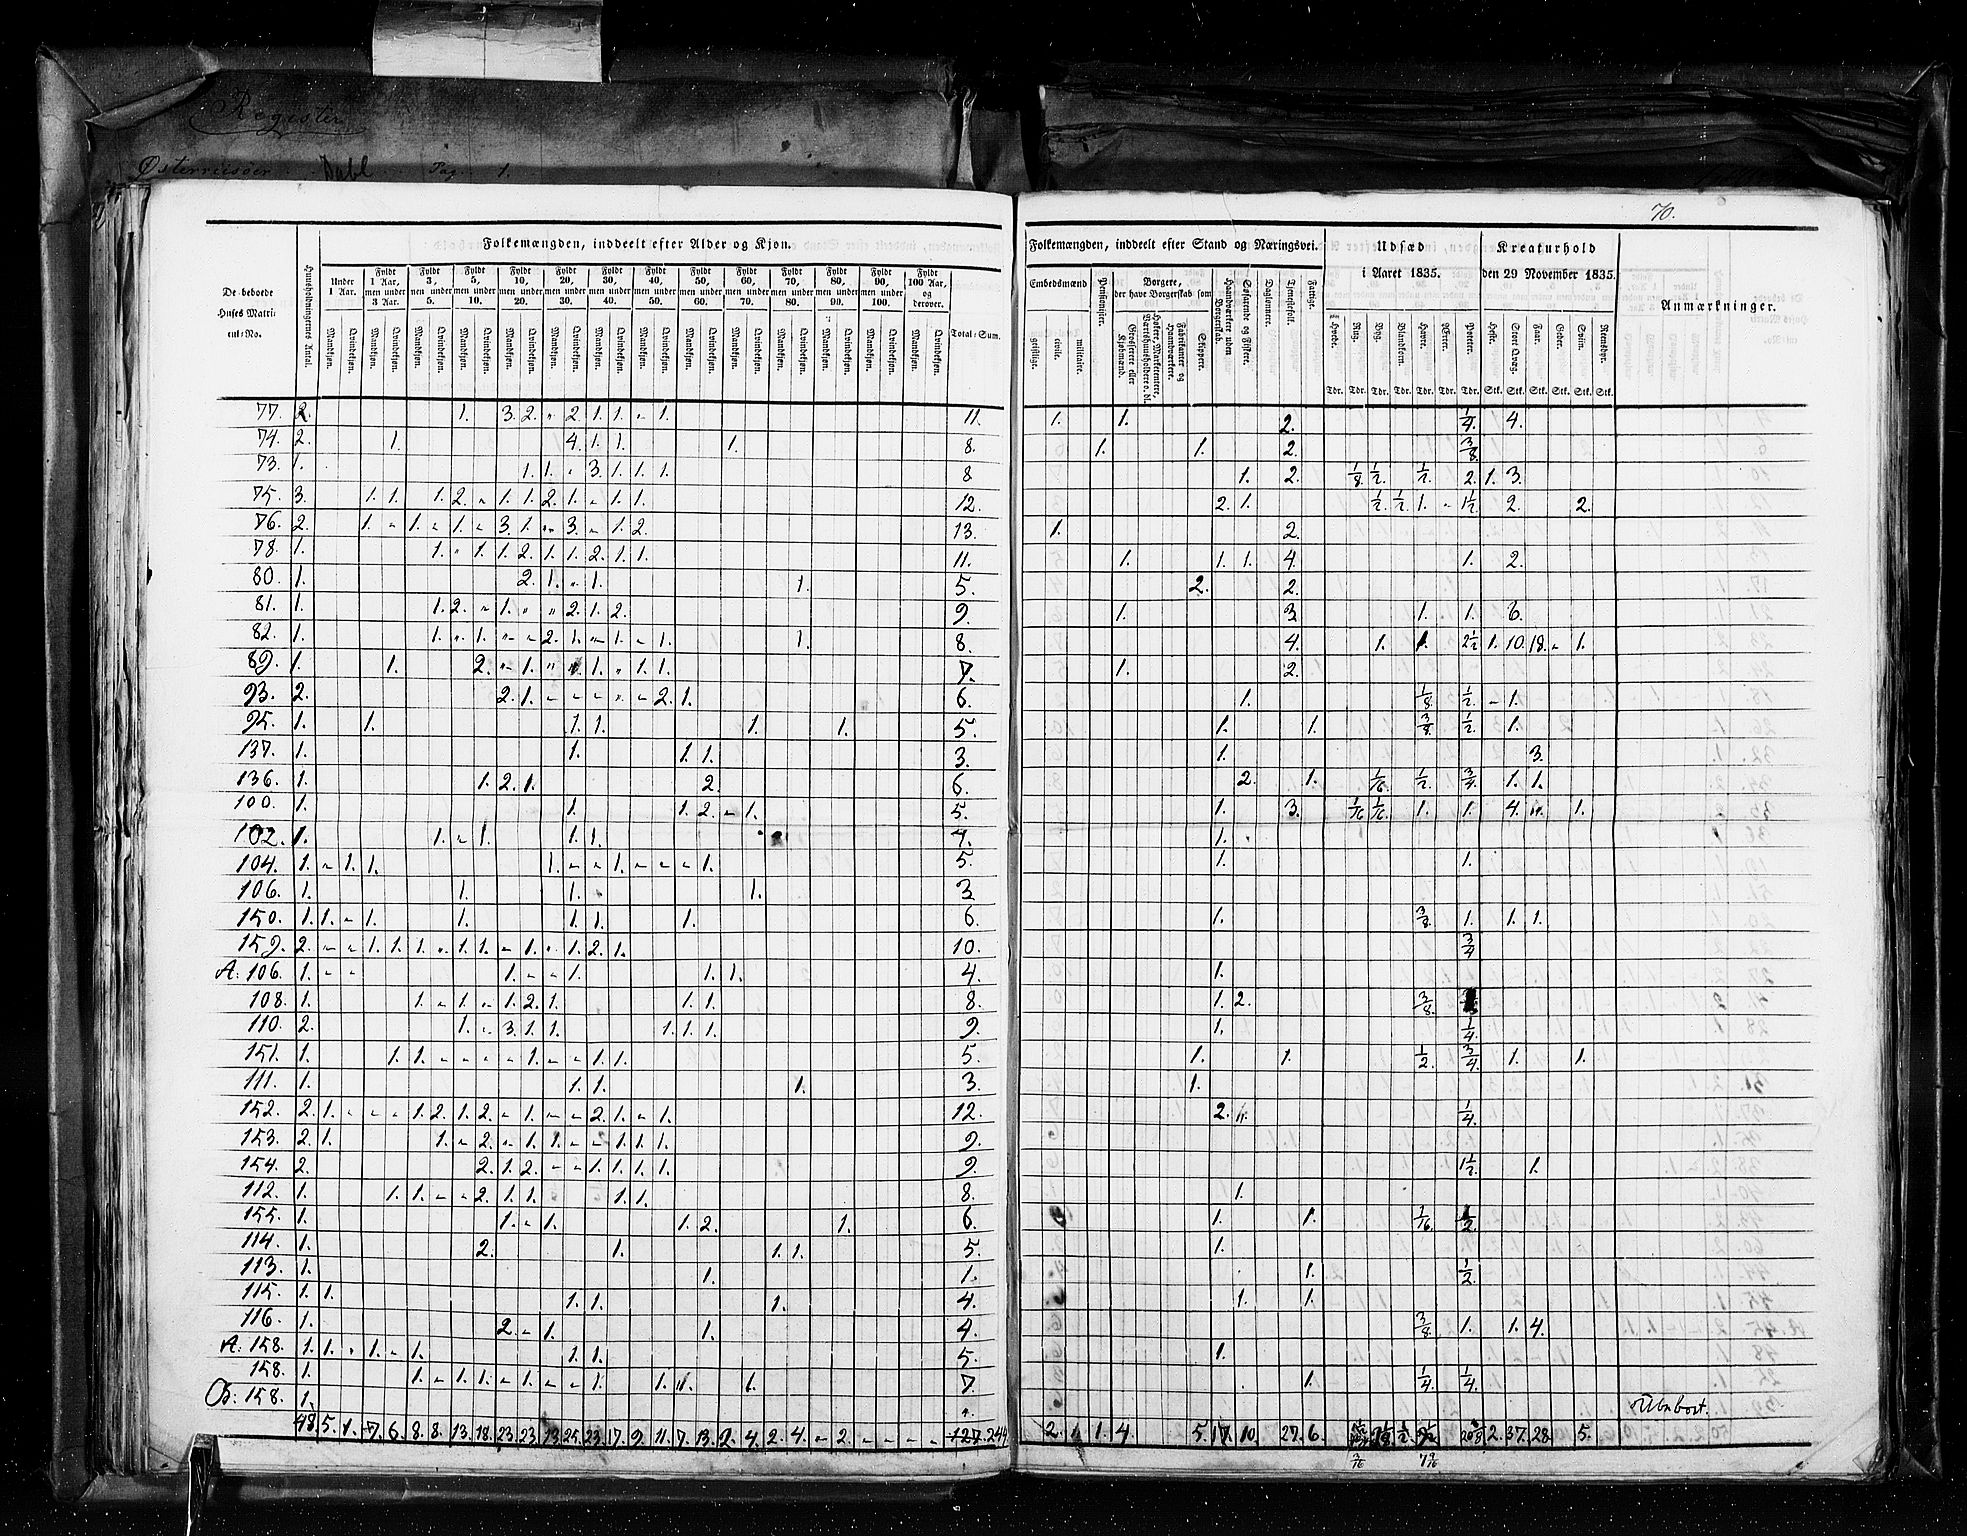 Register
Østerriisøer Dahl Pag. 1.
70.
De beboede Huses Matricul-No.
Huusholdningernes Antal.
Folkemængden, inddeelt efter Alder og Kjøn.
Under 1 Aar.
Fyldt 1 Aar, men under 3 Aar.
Fyldt 3, men under 5.
Fyldt 5, men under 10.
Fyldt 10, men under 20.
Fyldt 20, men under 30.
Fyldt 30, men under 40.
Fyldt 40, men under 50.
Fyldt 50, men under 60.
Fyldt 60, men under 70.
Fyldt 70, men under 80.
Fyldt 80, men under 90.
Fyldt 90, men under 100.
Fyldt 100 Aar, og derover.
Mandkjøn. Qvindekjøn.
Total-Sum.
Folkemængden, inddeelt efter Stand og Næringsvei.
Embedsmænd
geistlige. civile. militaire.
Pensionister.
Borgere, der have Borgerskab som
Grosserere eller Kjøbmænd.
Høkere, Marketentere, Værtshuusholdere o. dl.
Fabrikanter og Haandværkere.
Skippere.
Haandværkere uden Borgerskab.
Søfarende og Fiskere.
Daglønnere.
Tjenestefolk.
Fattige.
Udsæd i Aaret 1835.
Hvede. Rug. Byg. Blandkorn. Havre. Erter. Poteter.
Tdr. Tdr. Tdr. Tdr. Tdr. Tdr. Tdr.
Kreaturhold den 29 November 1835.
Heste. Stort Qvæg. Faar. Geder. Sviin. Rensdyr.
Stk. Stk. Stk. Stk. Stk. Stk.
Anmærkninger.
77. 2. 1. 3. 2. " 2. 1. 1. " 1. 11. 1. 1. 2. 1/4. 4.
74. 2. 1. 4. 1. 1. 1. 8. 1. 1. 2. 3/8.
73. 1. 1. 1. " 3. 1. 1. 1. 8 1. 2. 1/8 1/2. 1/2. 2. 1. 3.
75. 3. 1. 1. 1. 2. " 1. 1. 2. 1. " 1. 1. 12. 2. 1. 1/2. 1/2. 1. " 1 1/2. 2. 2.
76. 2. 1. " 1. " 1. " 3. 1. " 3. " 1. 2. 13. 1. 2.
78. 1. 1. " 1. 1. 2. 1. 1. 2. 1. 1. 11. 1. 1. 1. 4. 1. 2.
80. 1. 2. 1. " 1. 1. 5. 2. 2.
81. 1. 1. 2. " 1. " " 2. 1. 2. 9. 1. 3 1. 1. 6.
82. 1. 1. " 1. " " 2. 1. " 1. " 1. 1. 8. 4. 1. 1. 2 1/2 1. 10. 18. " 1.
89. 1. 1. 2. " 1. " 1. " 1. 1. 7. 1. 2.
93. 2. 2. 1. " " " " " 2. 1. 6. 1. 1/8 1/2. " 1.
95. 1. 1. 1. 1. 1. 1. 5. 1. 1. 3/8. 1/2. 1.
137. 1. 1. 1. 1. 3. 1. 3.
136. 1. 1. 2. 1. 2. 6. 2. 1. 1/16. 1/2. 3/4. 1. 1.
100. 1. 1. 1. 2. " 1. 5. 1. 3. 1/16 1/16. 1. 1. 4. 1.
102. 1. 1. " 1. 1. 1. 4. 1.
104. 1. " 1. 1. 1. " " 1. " " " 1. 5. 1. 1.
106. 1. 1. 1. 1. 3
150. 1. 1. " 1. 1. 1. 1. 1. 6. 1. 3/8. 1. 1. 1.
159. 2. " " 1. 1. 1. " 1. 1. " 1. " 1. 2. 1. 10. 3/4
A. 106. 1. " " 1. " " 1. 1. 1. 4. 1.
108. 1. 1. " 1. " 1. 2. 1. 1. 1. 8. 1. 2. 3/8.
110. 2. 1. " 3. 1. 1. 1. 1. 1. 9. 1. 1/4.
151. 1. 1. 1. " " " " 1. " " 1. 1. 5. 1. 1. 1/2. 3/4. 1. 1.
111. 1. 1. 1. 1. 3. 1.
152. 2. 1. " " " 1. 2. 1. 2. " 1. " " 2. 1. " 1. 12. 2. 1/4.
153. 2. 1. 1. " 2. " 1. 1. " " 1. 1. 1. 9.
154. 2. 2. 1. 2. " " 1. 1. 1. 1. 9. 1 1/2. 1.
112. 1. 1. 1. " " 2. 1. 1. 1. 1. 8. 1.
155. 1. 1. " 1. 1. 2. 1. 6. 1. 1. 1/16. 1/2.
114. 1. 2. 1. 1. 1. 5. 1.
113. 1. 1. 1. 1. 1/2.
115. 1. 1. 1. 1. 1. 4. 1. 1.
116. 1. 2. " 1. 1. 4. 3/8. 1. 1. 4.
A. 158. 1. 1. " 1. " 1. 1. 1. 5. 1.
158. 1. 1. " 1. 1. " 1. " " 1. 1. 1. 7. 1. 1/4. 1/4.
B. 158. 1. Ubeboet.
48 5. 1. 7. 6. 8. 8. 13. 18. 23. 23. 13. 25. 23. 17. 9. 11. 7. 13. 2. 4. 2. 4. " 2. " " " " 244 2. 1. 1. 4. 5. 17. 10. 27. 6. 1/2. 2. 37. 28. 5.